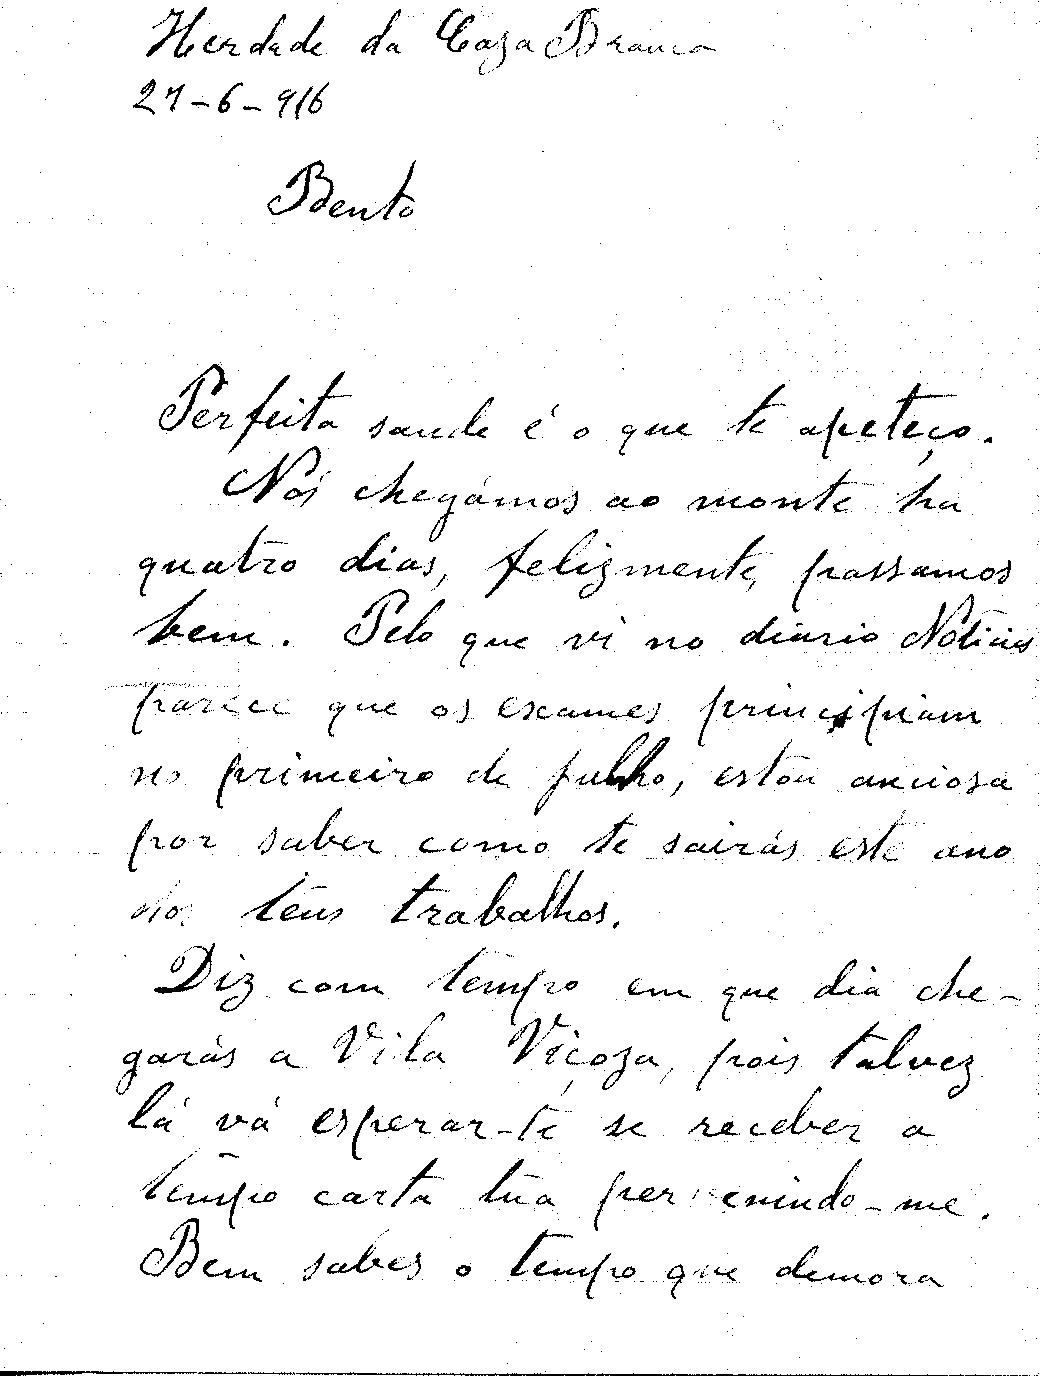 Herdade da Caza Branca
27-6-916
Bento
Perfeita saude é o que te apeteço.
Nós chegámos ao monte ha
quatro dias, felizmente, passamos
bem. Pelo que vi no diario Noticias
parece que os exames principiam
no primeiro de julho, estou anciosa
por saber como te sairás este ano
nos teus trabalhos.
Diz com tempo em que dia che-
garás a Vila Viçoza, pois talvez
lá vá esperar-te se receber a
tempo carta tua pervenindo-me.
Bem sabes o tempo que demora